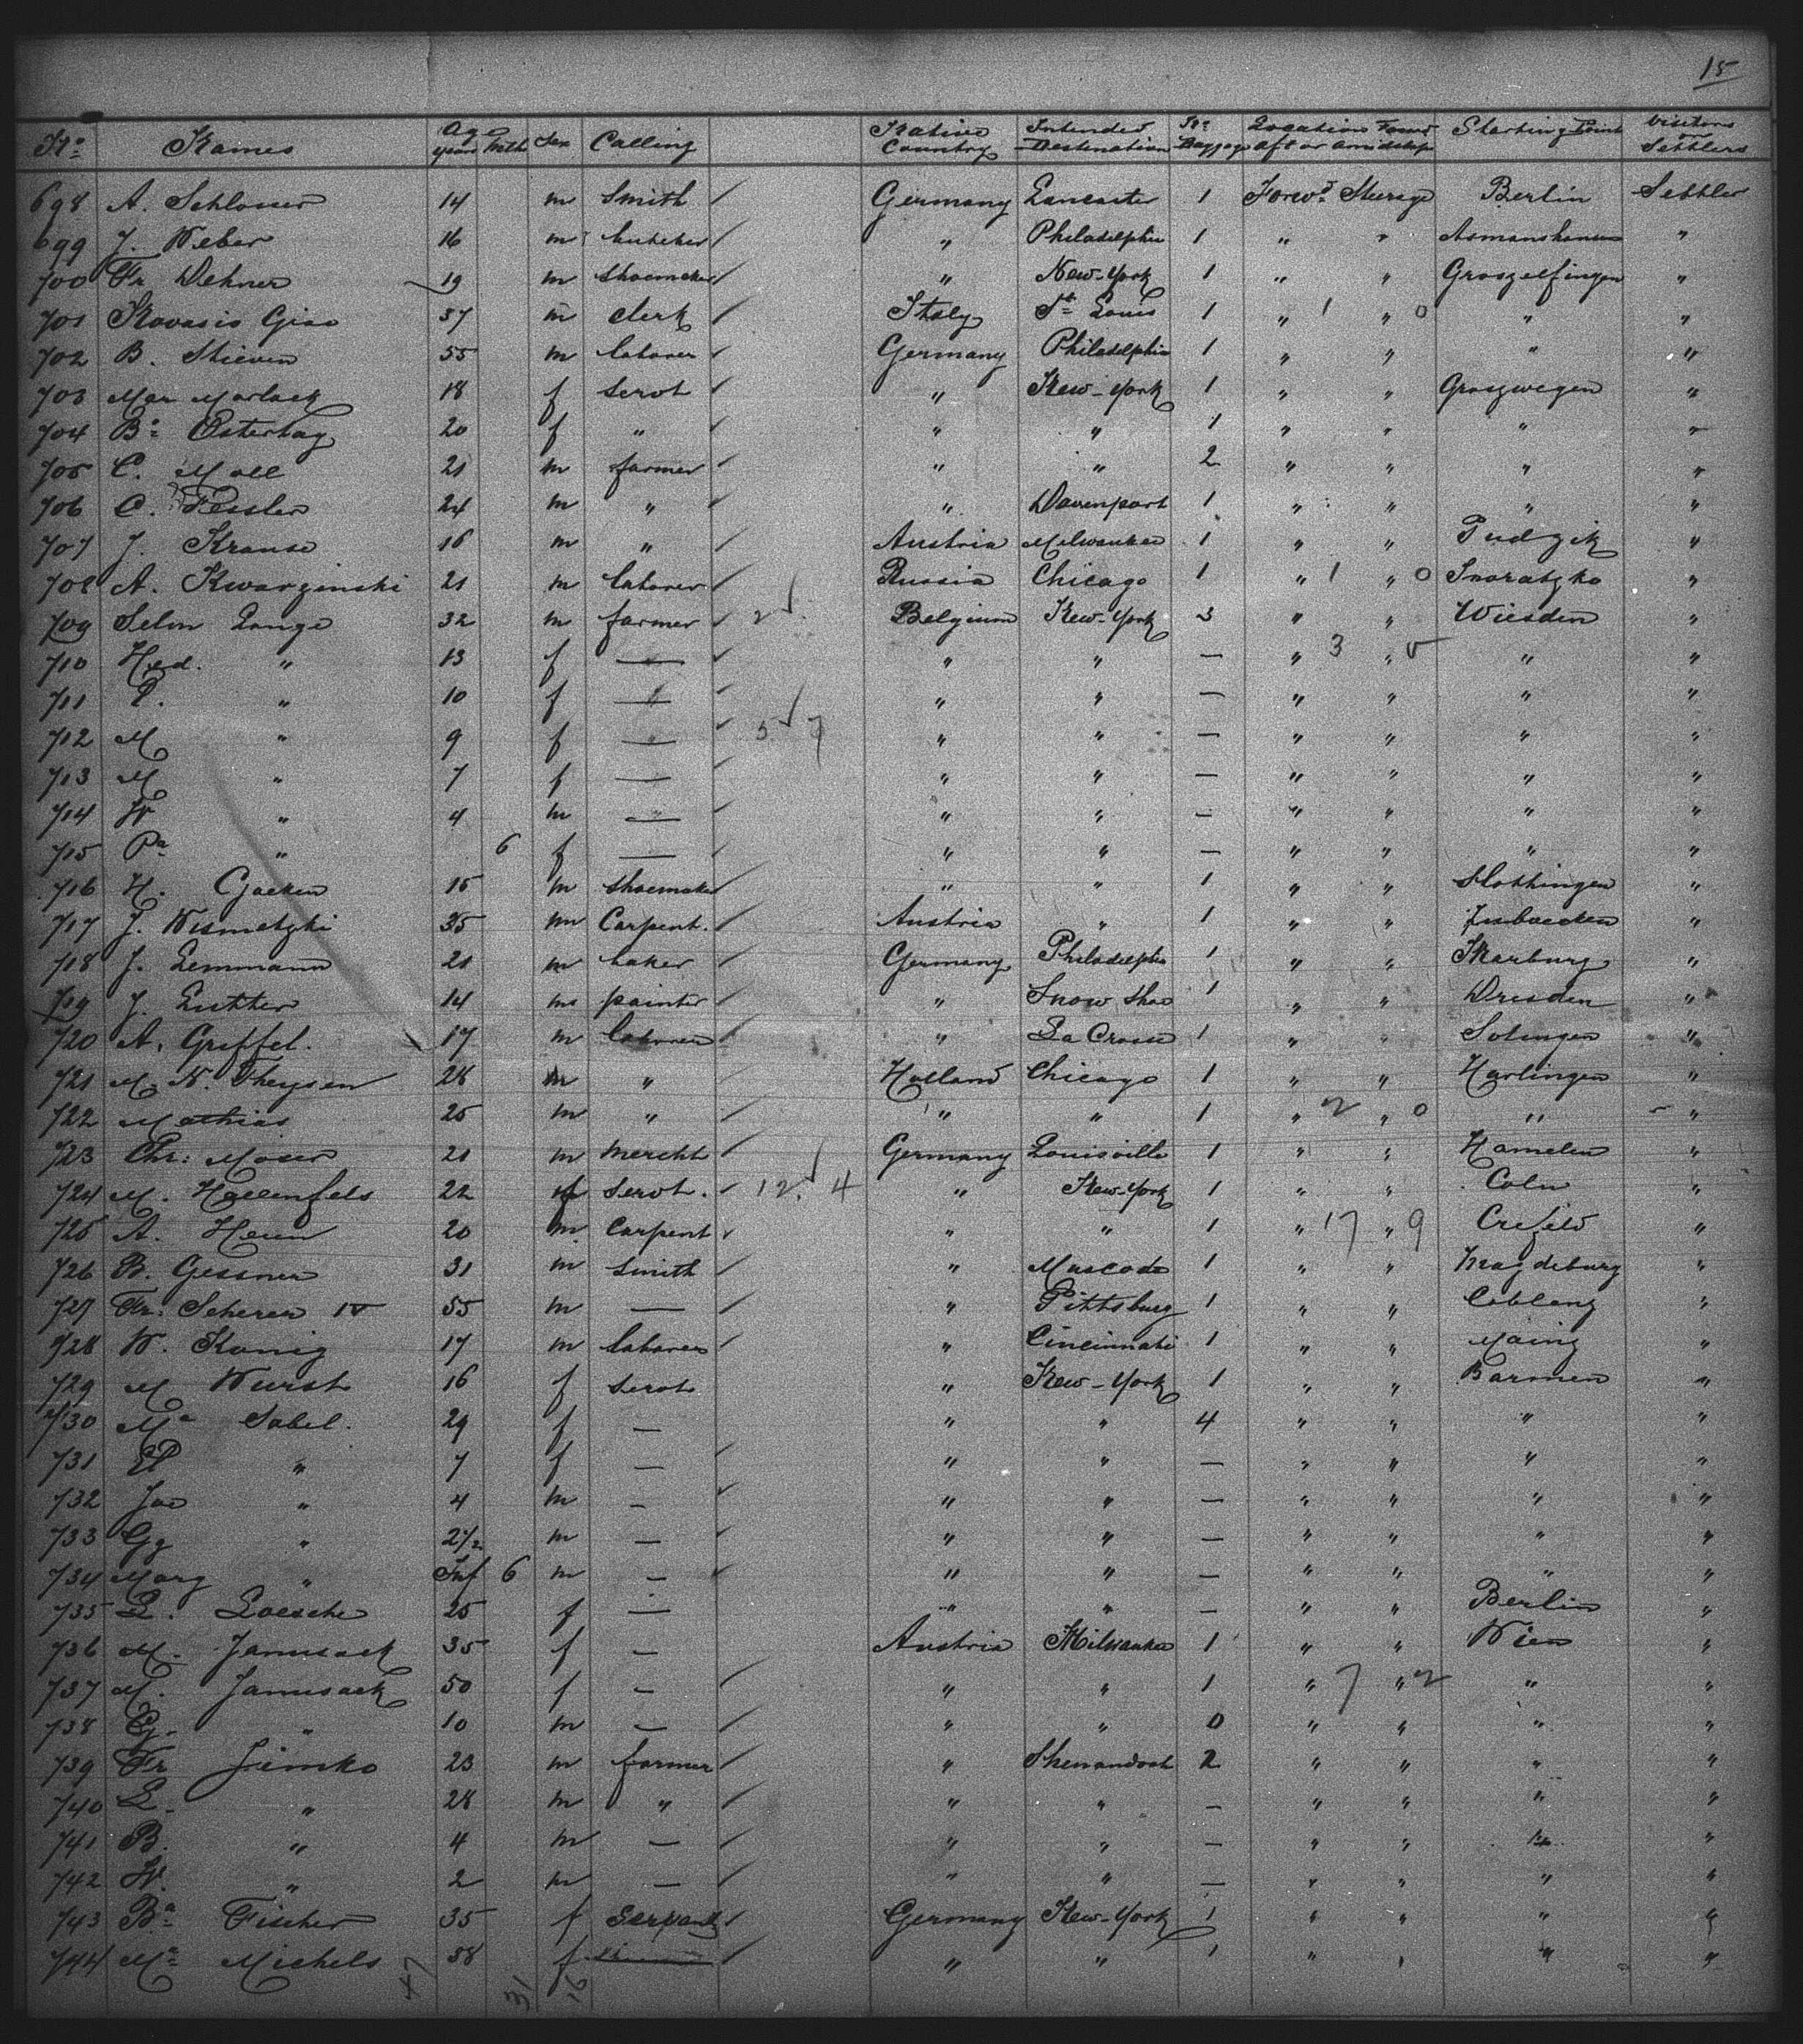 15
No Names Age years Mths Sex Calling Native Country Intended Destination No Baggage Location Forwd Aft or Amidship Starting Point Visitors or Settlers
698 A. Schlosser 14 m Smith Germany Lancaster 1 Forwd Steerage Berlin Settler
699 J. Weber 16 m butcher " Philadelphia 1 " " Asmanshausen "
700 Fr. Dehner 19 m shoemaker " New-York 1 " " Groszelfingen "
701 Giao 37 m clerk Italy St Louis 1 " 1 " 0 " "
702 B. Stieven 55 m laborer Germany Philadelphia 1 " " " "
703 Mar Morlock 18 f servt " New-York 1 " " Groszwegen "
704 Ba Ostertag 20 f " " " 1 " " " "
705 C. Moll 21 m farmer " " 2 " " " "
706 C. Fessler 24 m " " Davenport 1 " " " "
707 J. Krause 16 m " Austria Milwaukee 1 " " Pudzik "
708 A. Kwarzinski 21 m laborer Russia Chicago 1 " 1 " 0 Snoratzko "
709 Selm Lange 32 m farmer 2 Belgium New-York 3 " " Wiesden "
710 Hed. " 13 f — " " — " 3 " 5 " "
711 P. " 10 f — " " — " " " "
712 M " 9 f — 5 9 " " — " " " "
713 M " 7 f — " " — " " " "
714 W " 4 m — " " — " " " "
715 Pa " 6 f — " " — " " " "
716 H. Goeken 15 m shoemaker " " 1 " " Slothingen "
717 J. Wismetzki 35 m Carpent. Austria " 1 " "
718 J. Lemmann 21 m baker Germany Philadelphia 1 " " Harburg "
719 J. Lutter 14 m painter " Snow Shoe 1 " " Dresden "
720 A. Griffel. 17 m laborer " La Crosse 1 " " Solingen "
721 M. N. Theysen 28 m " Holland Chicago 1 " " Harlingen "
722 Mathias 25 m " " " 1 " 2 " 0 " "
723 Chr: Moser 21 m Mercht Germany Louisville 1 " " Hamelen "
724 M. Hollenfels 22 f Servt. 12. 4 " New-York 1 " " Coln "
725 A. Heun 20 m Carpent " " 1 " 17 " 9 Crefeld "
726 B. Gessner 31 m Smith " Muscoda 1 " " Magdeburg "
727 Fr. Scherer IV 55 m — " Pittsburg 1 " " Coblenz "
728 W. Konig 17 m laborer " Cincinnati 1 " " Mainz "
729 M Wurst 16 f servt " New-York 1 " " Barmen "
730 Ma Sabel. 29 f — " " 4 " " " "
731 El " 7 f — " " — " " " "
732 Jac " 4 m — " " — " " " "
733 Gg " 2 1/2 m — " " — " " " "
734 Marg " Inf 6 m — " " — " " " "
735 L. Loesche 25 f — " " — " " Berlin "
736 M. Janusack 35 f — Austria Milwaukee 1 " " Wien "
737 M. Janusack 50 f — " " 1 " 7 " 2 " "
738 G. " 10 m — " " 0 " " " "
739 Fr Jimko 23 m farmer " Shenandoah 2 " " " "
740 L. " 28 m " " " — " " " "
741 B. " 4 m — " " — " " " "
742 W. " 2 m — " " — " " " "
743 Ba Fischer 35 f Servant Germany New-York 1 " " " "
744 Ma Michels 58 f — " " 1 " " " "
47 31 16